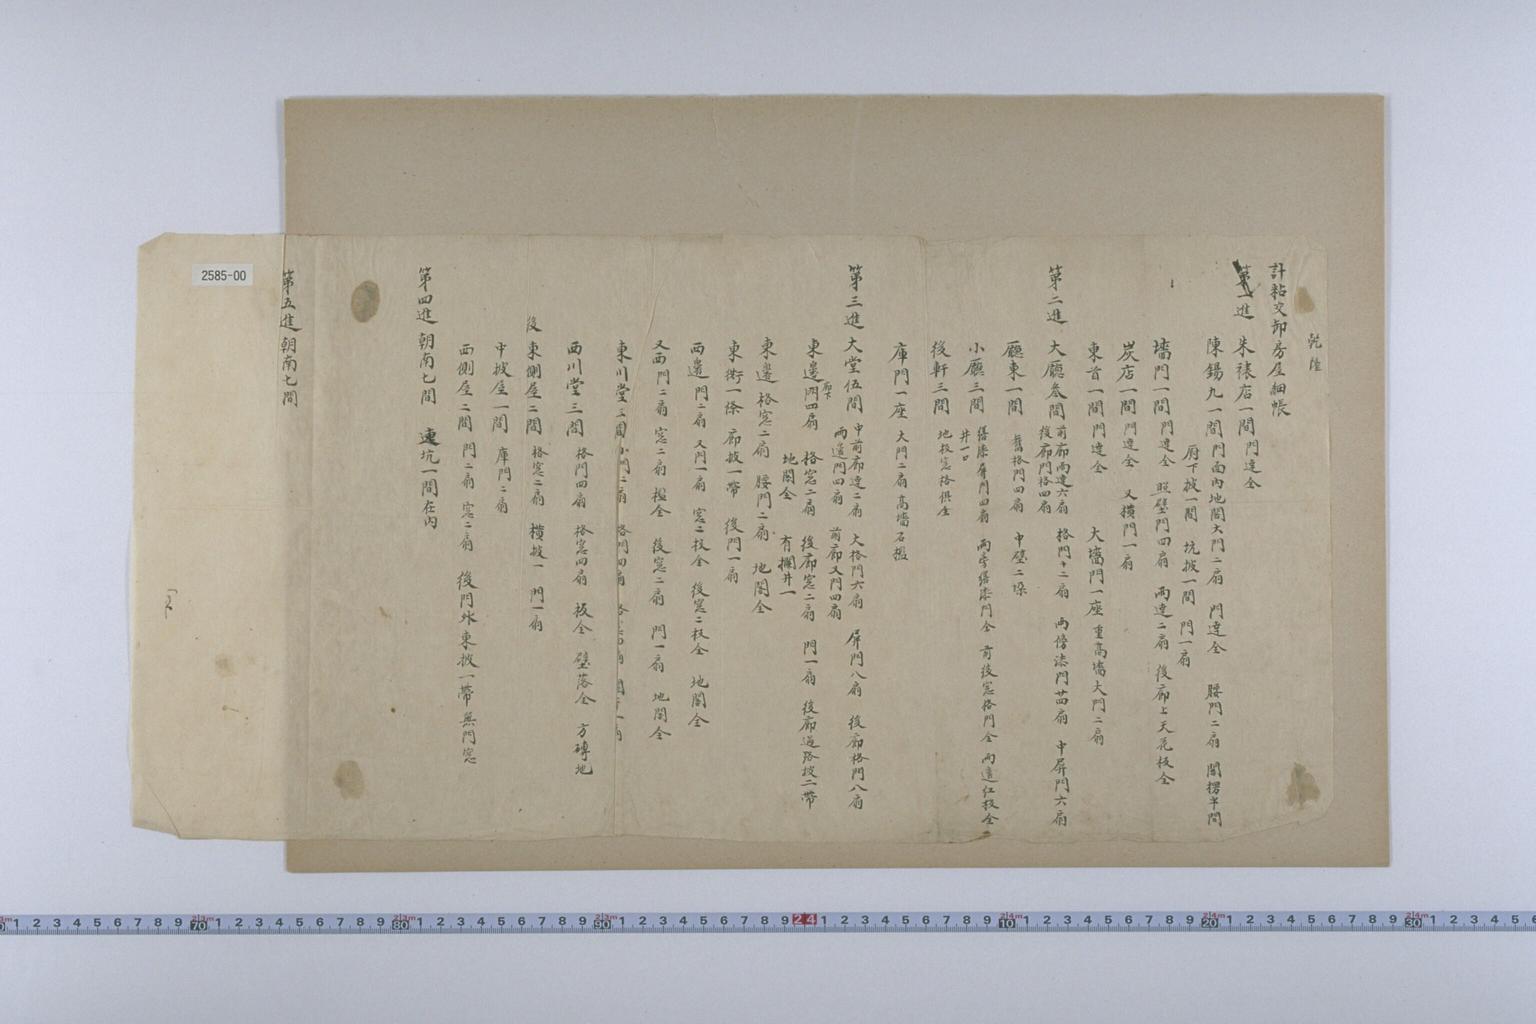 計粘交卸房屋細帳
第一進 朱裱店一間 門達全
陳錫九一間 門面內地閣大門二扇 門達全 腰門二扇 閣楞半間
府下披一間 坑披一間 門一扇
墻門一間 門達全 照壁門四扇 兩達二扇 後廊上天花板全
炭店一間 門達全 又橫門一扇
東首一間 門達全 大墻門一座 重高墻大門二扇
第二進 大廳叁間 前廊兩達六扇 後廊門格四扇 格門十二扇 兩傍漆門廿四扇 中屏門六扇
廳東一間 舊格門四扇 中壁二垜
小廳三間 屏門四扇 門全 前後窓格門全 兩邊紅板全
井一口
後軒三間 地板窓格俱全
庫門一座 大門二扇 高墻石
第三進 大堂伍間 中前廊達二扇 兩邊門四扇 大格門六扇 前廊又門四扇 屏門八扇 後廊格門八扇
東邊廂下門四扇 格窓二扇 地閣全 後廊窓二扇 有欄井一 門一扇 後廊過路披二帶
東邊 格窓二扇 腰門二扇 地閣全
東衖一條 廊披一帶 後門一扇
西邊 門二扇 又門一扇 窓二板全 後窓二板全 地閣全
又西門二扇 窓二扇 全 後窓二扇 門一扇 地閣全
東川堂三間 小門二扇 格門四扇
西川堂三間 格門四扇 格窓四扇 板全 壁落全 方磚地
後東側屋二間 格窓二扇 橫披一 門一扇
中披屋一間 庫門二扇
西側屋二間 門二扇 窓二扇 後門外東披一帶無門窓
第四進 朝南七間 連坑一間在內
第五進 朝南七間
2585-00